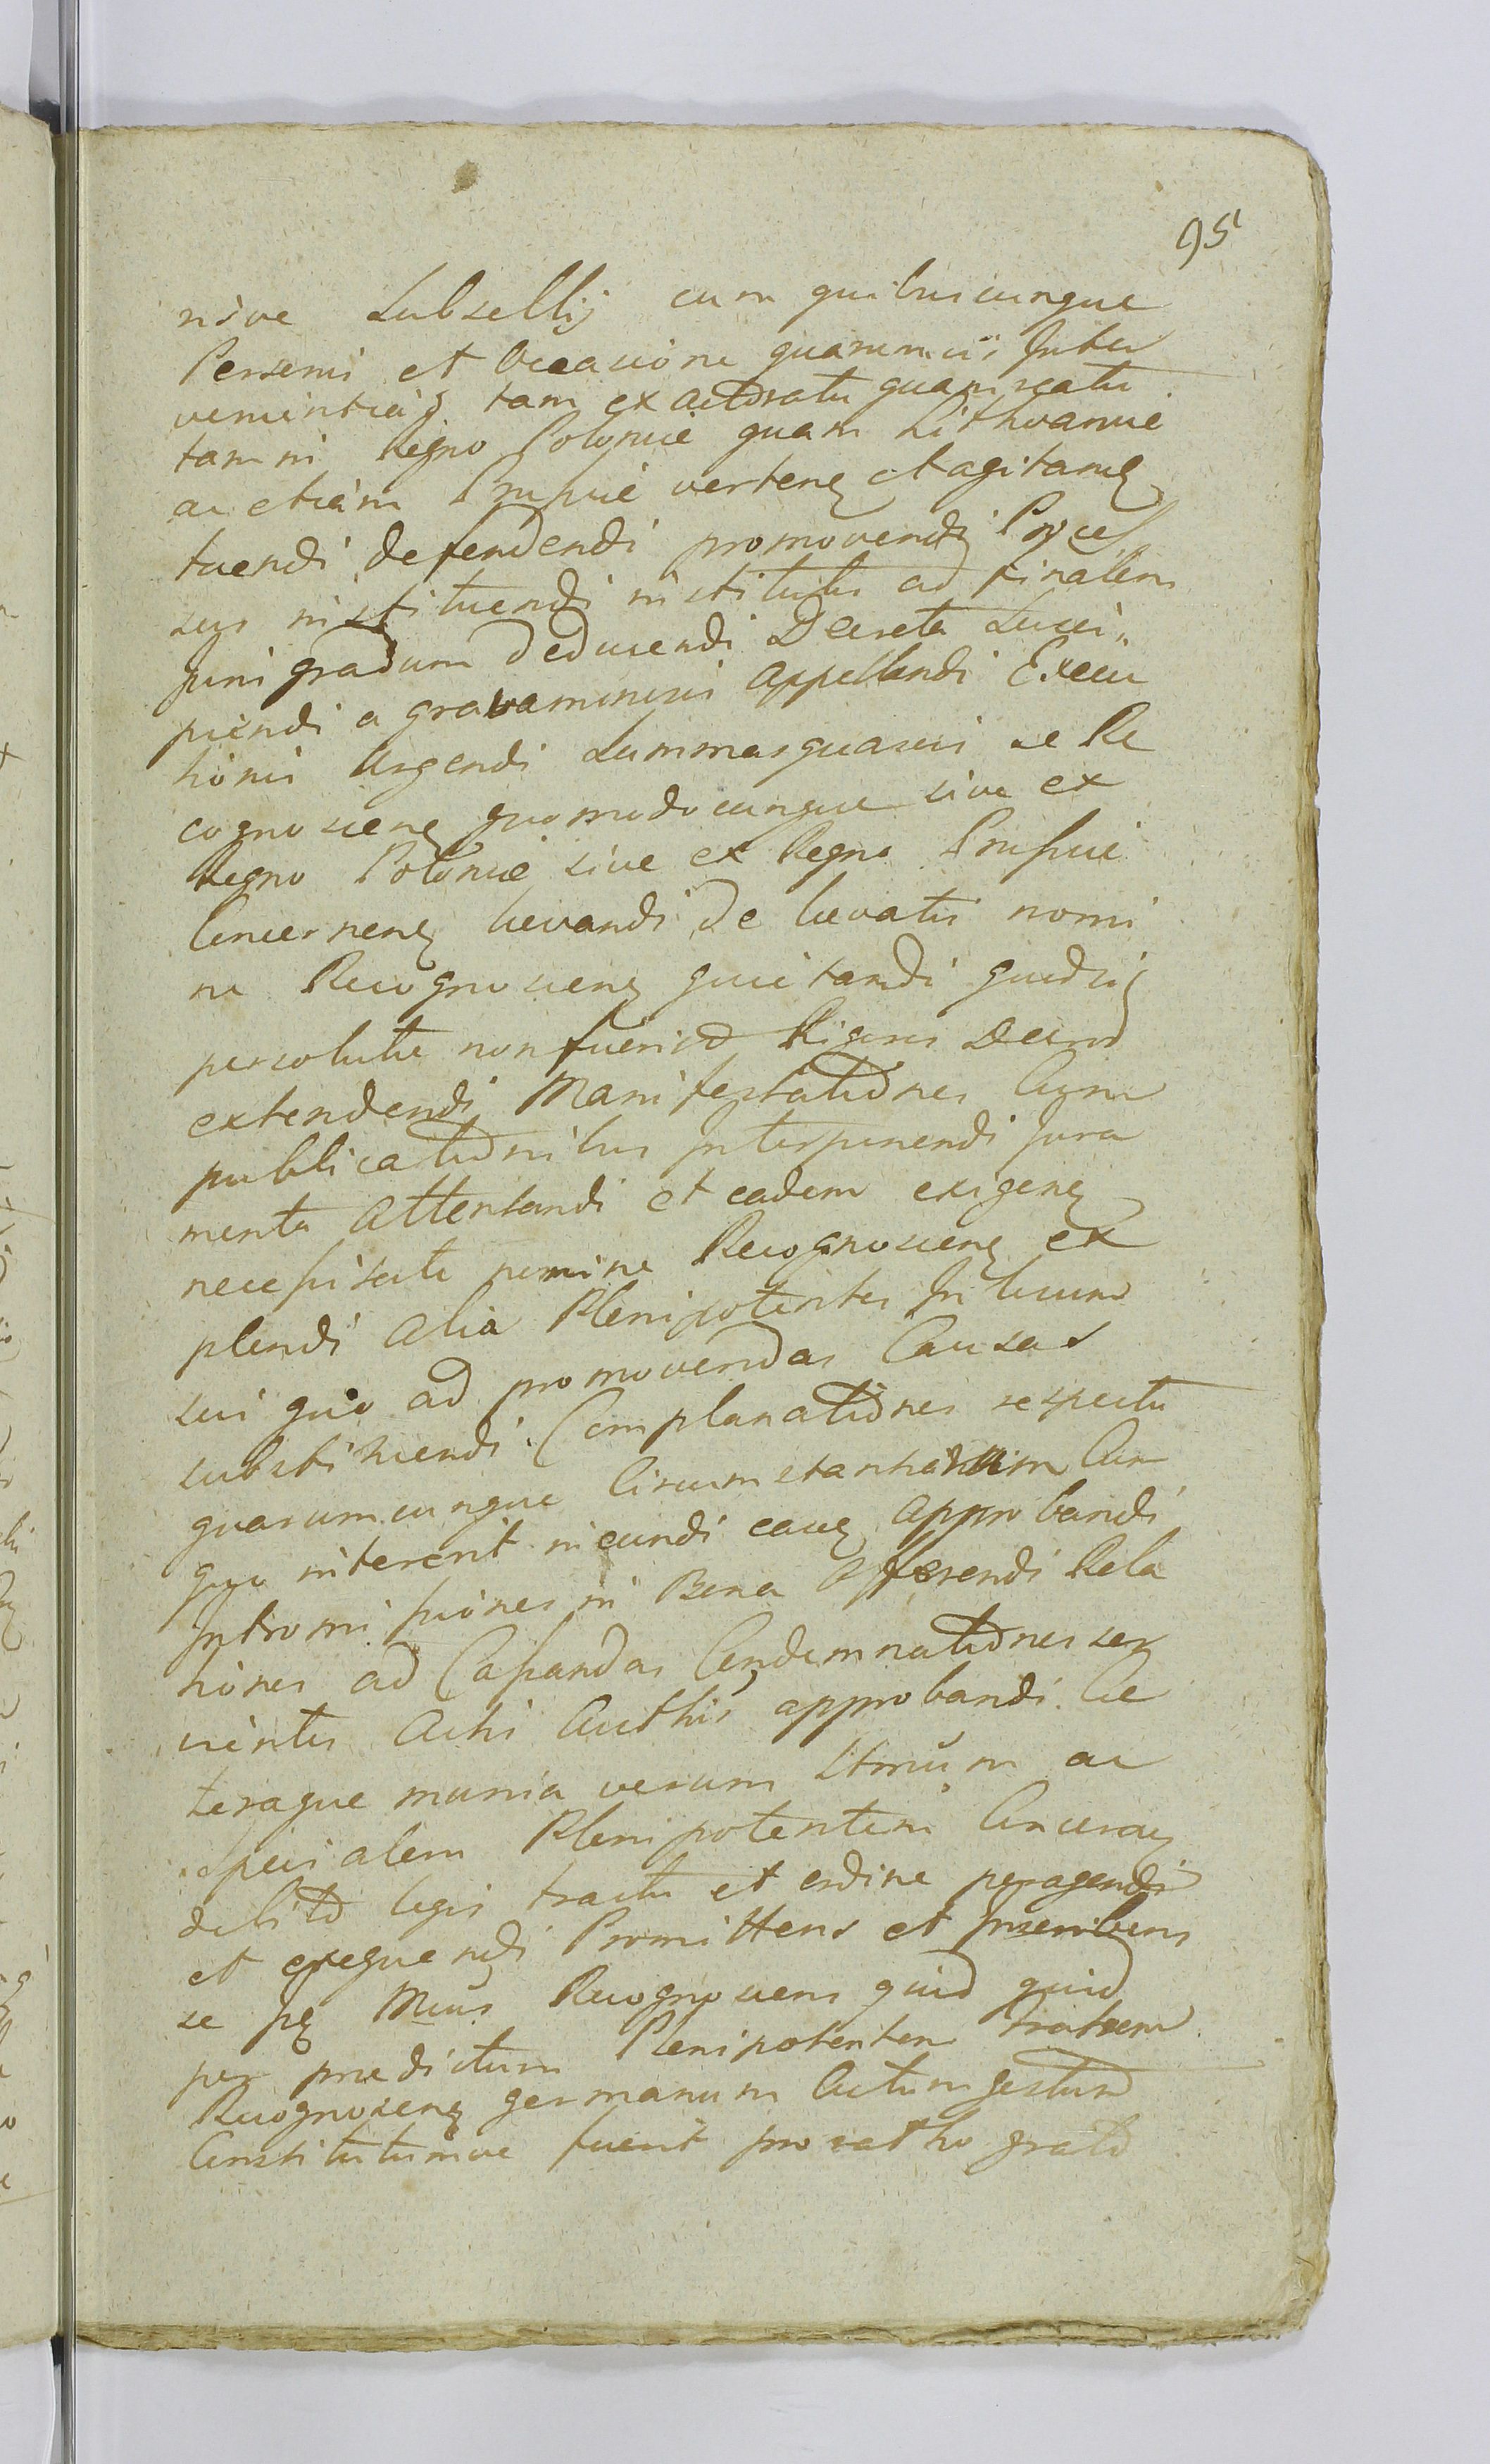 95
nive Subsellij cum quibuscunque
Personis et Occasione quarumvis Inter
venientiaz tam ex actoratu quam reatu
tam in Regno Polonie quam Lithvanie
ac etiam Prussie verteñ et agitañ
tuendi defendendi promovendi Proces
sus instituendi institutos ad Finalem
Juris gradum deducendi Decreta Susci„
piendi a gravaminosis appellandi Execu
tionis Urgendi Summas quasvis se Re
cognosceñ quomodocunque sive ex
Regno Polonie sive ex Regno Prussie
Concerneñ levandi de levatis nomi
ne Recognosceñ quietandi quodsi
persolute non fuerint Rigores
extendendi Manifestationes Cum
publicationibus Interponendi Jura
menta Attentandi et eadem exigeñ
necessitate nomine Recognosceñ ex
plendi Alia Plenipotentes In locum
sui quo ad promovendas Causas
substituendi Complanationes respectu
quarumcunque Circumstantiarum Cum
quo intererit ineundi easq approbandi
Intromissiones in Bona Offerendi Rela
tiones ad Cassandas Condemnationes ser
vientes Actis Authis approbandi Ce
teraque munia verum Ltmum ac
Specialem Plenipotentem Conceraeñ
debito legis tractu et ordine peragendi
et exequendi Promittens et Inscribens
se Mñus Recognoscens quid quid
per predictum Plenipotentem Fratrem
Recognosceñ germanum Actum gestum
Constitutumve fuerit pro ratho grato